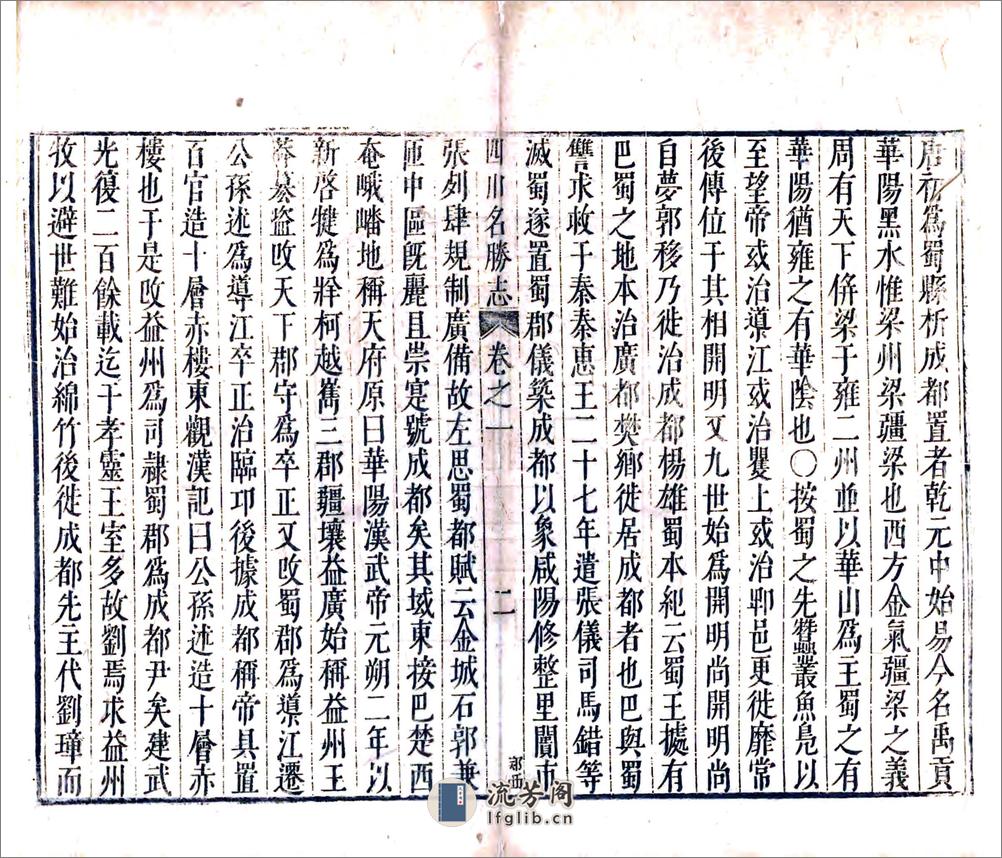 唐初為蜀縣析成都置者乾元中始易今名禹貢
華陽黑水惟梁州梁疆梁也西方金氣疆梁之義
周有天下併梁于雍二州並以華山為主蜀之有
華陽猶雍之有華陰也〇按蜀之先蠶叢魚鳧以
至望帝或治導江或治瞿上或治郫邑更徙靡常
後傳位于其相開明又九世始為開明尚開明尚
自夢郭移乃徙治成都楊雄蜀本紀云蜀王據有
巴蜀之地本治廣都樊鄉徙居成都者也巴與蜀
讐求救于秦秦惠王二十七年遣張儀司馬錯等
滅蜀遂置蜀郡儀築成都以象咸陽修整里闠市
四川名勝志 卷之一 二
張列肆規制廣備故左思蜀都賦云金城石郭兼
匝中區既麗且崇寔號成都矣其域東接巴楚西
奄峨嶓地稱天府原曰華陽漢武帝元朔二年以
新啓犍為牂柯越嶲三郡疆壤益廣始稱益州王
莽篡盜改天下郡守為卒正又改蜀郡為導江遷
公孫述為導江卒正治臨卭後據成都稱帝具置
百官造十層赤樓東觀漢記曰公孫述造十層赤
樓也于是改益州為司隷蜀郡為成都尹矣建武
光復二百餘載迄于孝靈王室多故劉焉求益州
牧以避世難始治綿竹後徙成都先王代劉璋而
流芳阁
lfglib.cn